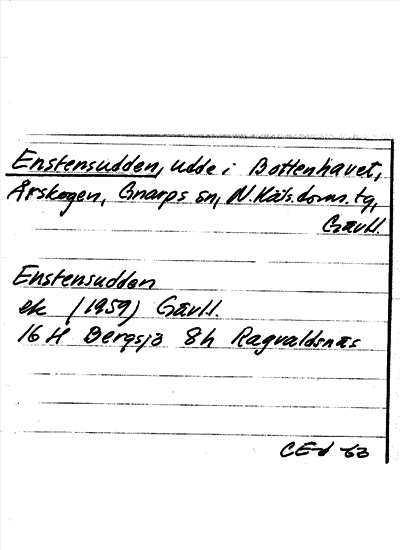 Enstensudden, udde i Bottenhavet,
Årskogen, Gnarps sn, N. Häls. doms. tg,
Gävll.
Enstensudden
ek (1959) Gävll.
16 H Bergsjö 8h Ragvaldsnäs
CEd 63